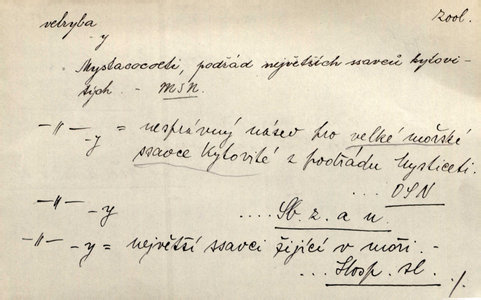 velryba zool.
-y
Mystacoceti, podřád největších ssavců kytovi-
tých. - MSN.
-〃- -y = nesprávný název pro velké mořské
ssavce kytovité z podřádu Mysticeti.
... OSN
-〃- -y .... Sb. z. a n.
-〃- -y = největší ssavci žijící v moři. -
... Hosp. sl. ./.